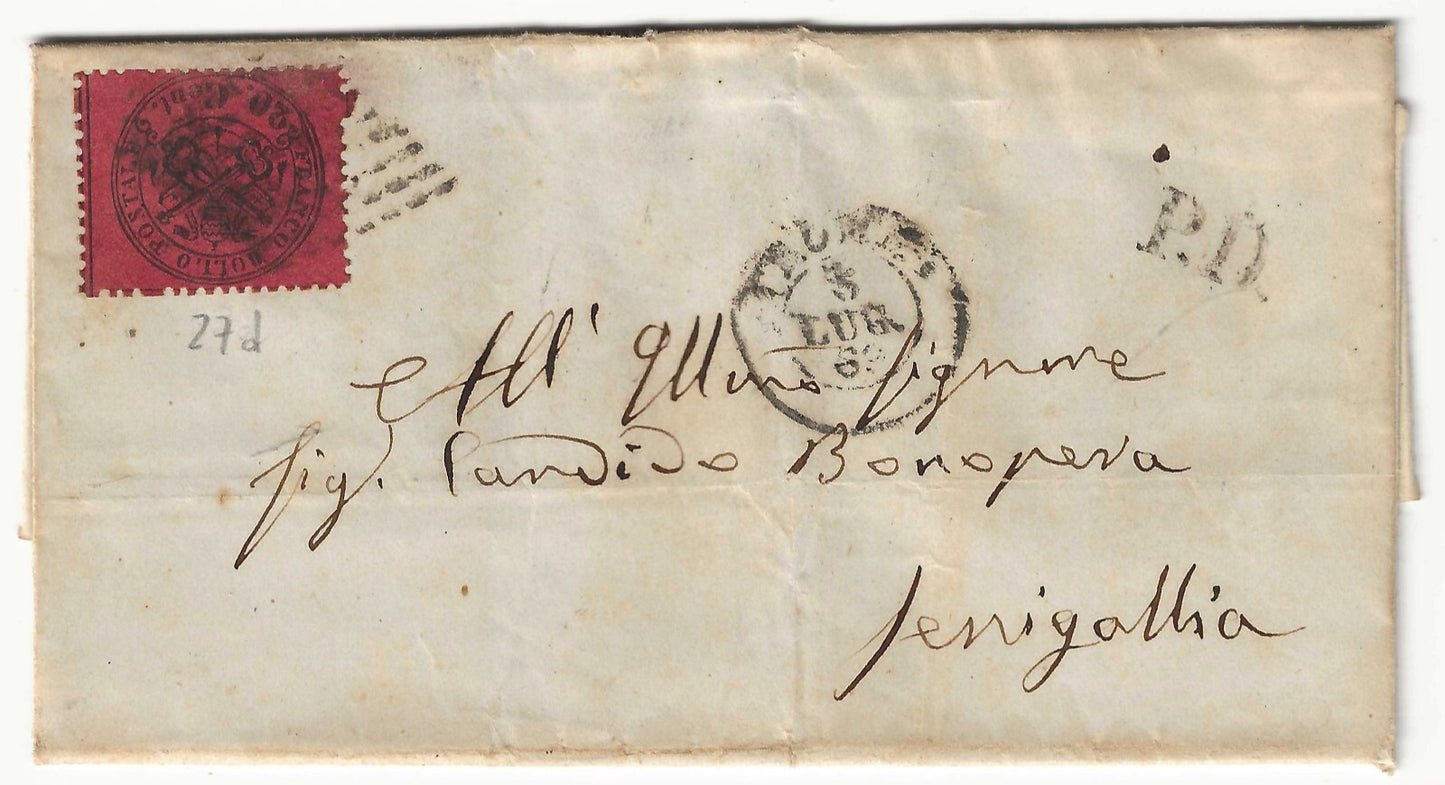 FRANCO BOLLO POSTALE
20 Cent.
P.D.
LUG
27d
All' Illmo Signore
Sig. Candido Bonopera
Senigallia